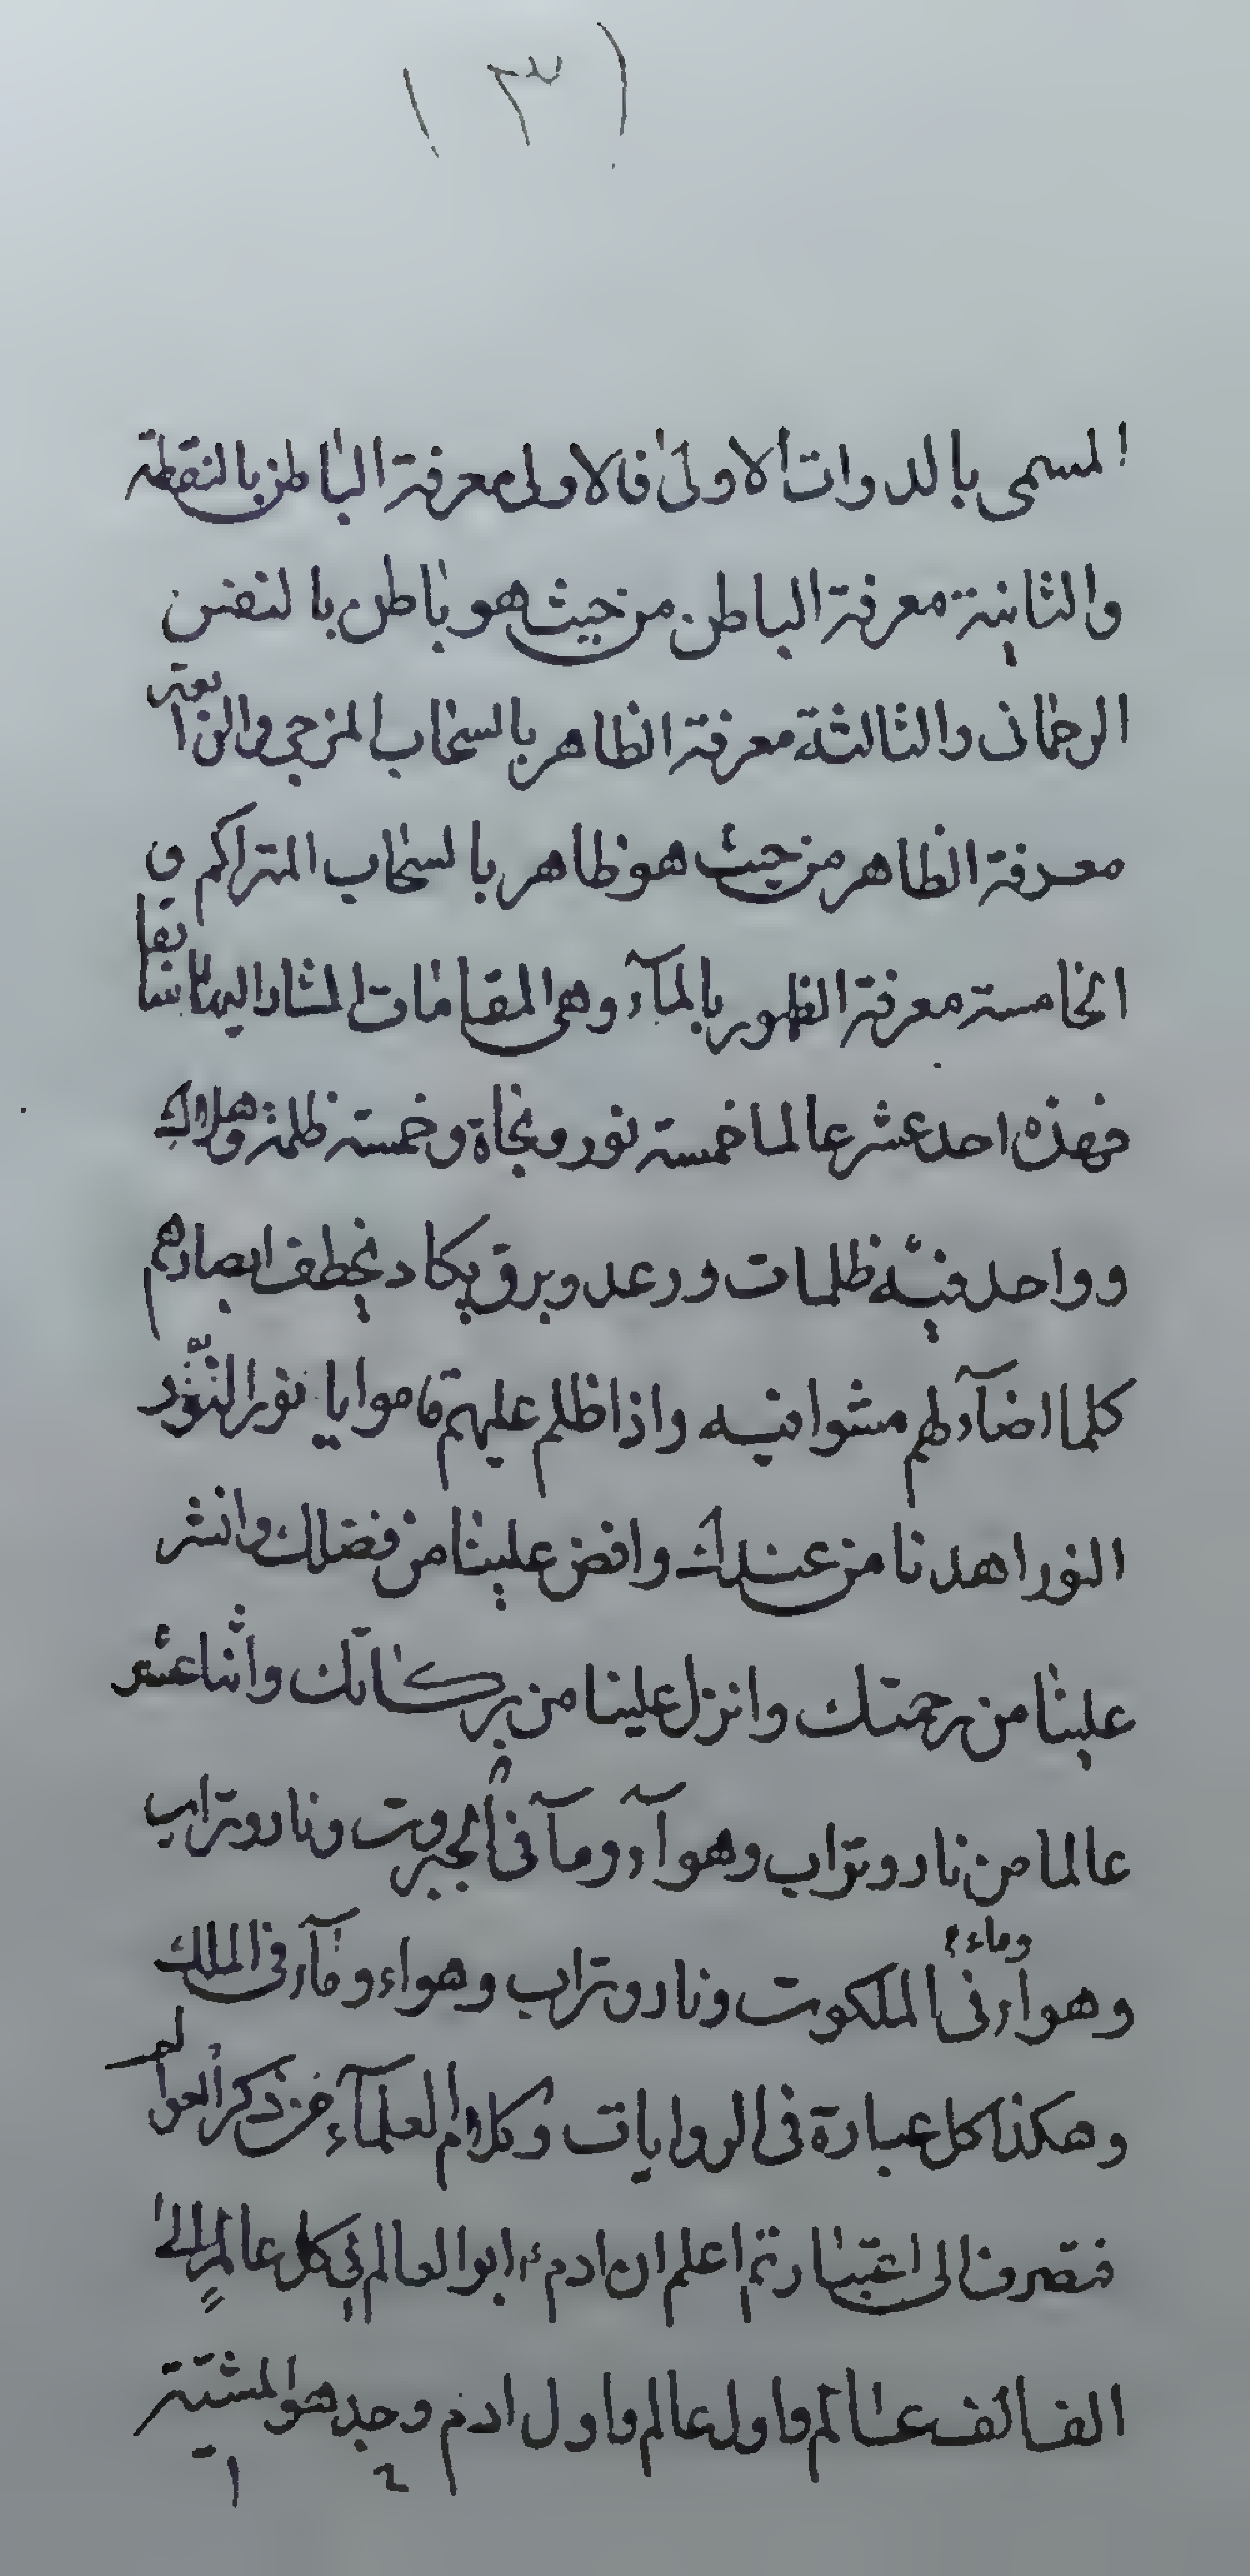 ( ٣ )
المسمى بالدوات الاولى فالاولى معرفة الباطن بالنقطة
والثانية معرفة الباطن من حيث هو باطن بالنفس
الرحمانى والثالثة معرفة الظاهر بالسحاب المزجى والرابعة
معرفة الظاهر من حيث هو ظاهر بالسحاب المتراكم و
الخامسة معرفة الظهور بالمآء وهى المقامات المشار اليها سابقا
فهذه احد عشر عالما خمسة نور ونجاة وخمسة ظلمة وهلاك
وواحد فيه ظلمات ورعد وبرق يكاد يخطف ابصارهم
كلما اضآء لهم مشوا فيه واذا اظلم عليهم قاموا يا نور النور
النور اهدنا من عندك وافض علينا من فضلك وانشر
علينا من رحمتك وانزل علينا من بركاتك واثنا عشر
عالما من نار وتراب وهوآء ومآ فى الجبروت ونار وتراب
وهوآء وماء فى الملكوت ونار وتراب وهواء ومآء فى الملك
وهكذا كل عبارة فى الروايات وكلام العلمآء من ذكر العوالم
فتصرف الى اعتبار ثم اعلم ان ادم ابو العالم فى كل عالم الى
الف الف عالم واول عالم واول ادم وجد هو المشية